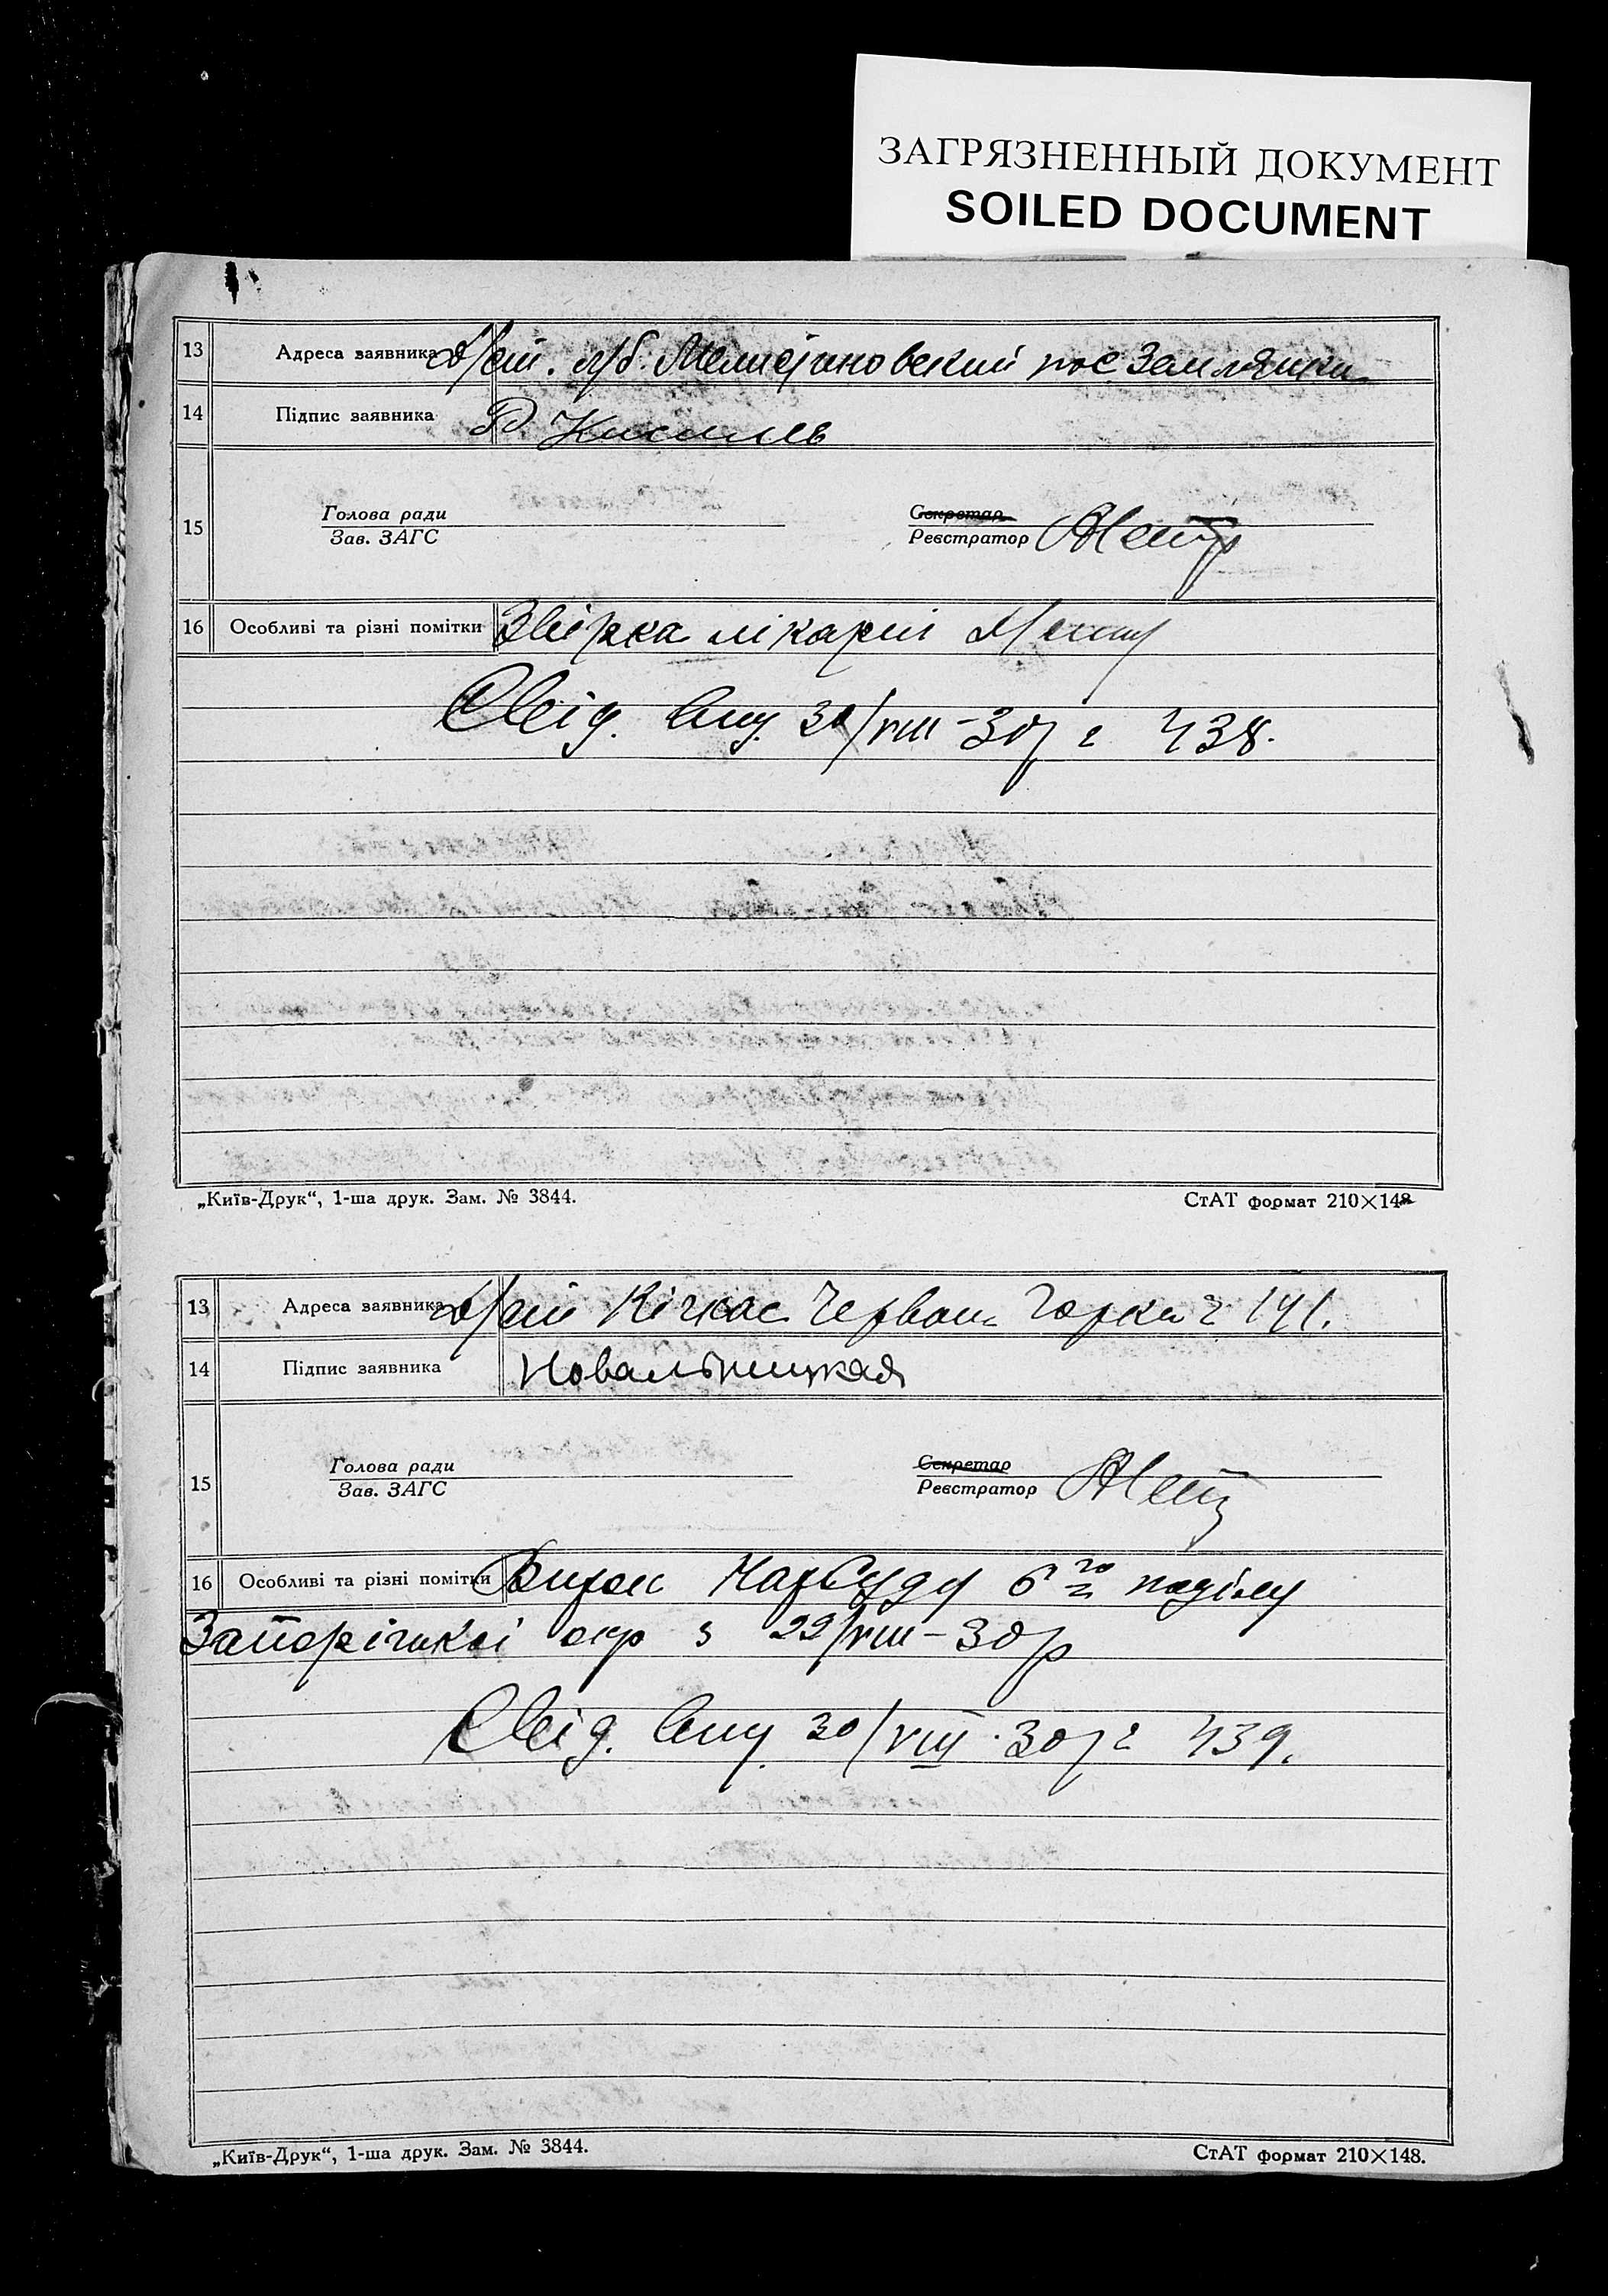 ЗАГРЯЗНЕННЫЙ ДОКУМЕНТ
SOILED DOCUMENT
13 Адреса заявника пос Землянки
14 Підпис заявника
Голова ради Секретар
15
Зав. ЗАГС Реєстратор
16 Особливі та різні помітки Звірка лікарні
Свід. вид. 30/VIII-30р № 438.
„Київ-Друк“, 1-ша друк. Зам. № 3844. СтАТ формат 210×148
13 Адреса заявника Кічкас Червон. Горка № 141.
14 Підпис заявника Ковальницкая
Голова ради Секретар
15
Зав. ЗАГС Реєстратор
16 Особливі та різні помітки Вирок НарСуду 6го поділу
Запоріжської окр з 29/VIII-30р
Свід. вид. 30/VIII-30р № 439.
„Київ-Друк“, 1-ша друк. Зам. № 3844. СтАТ формат 210×148.